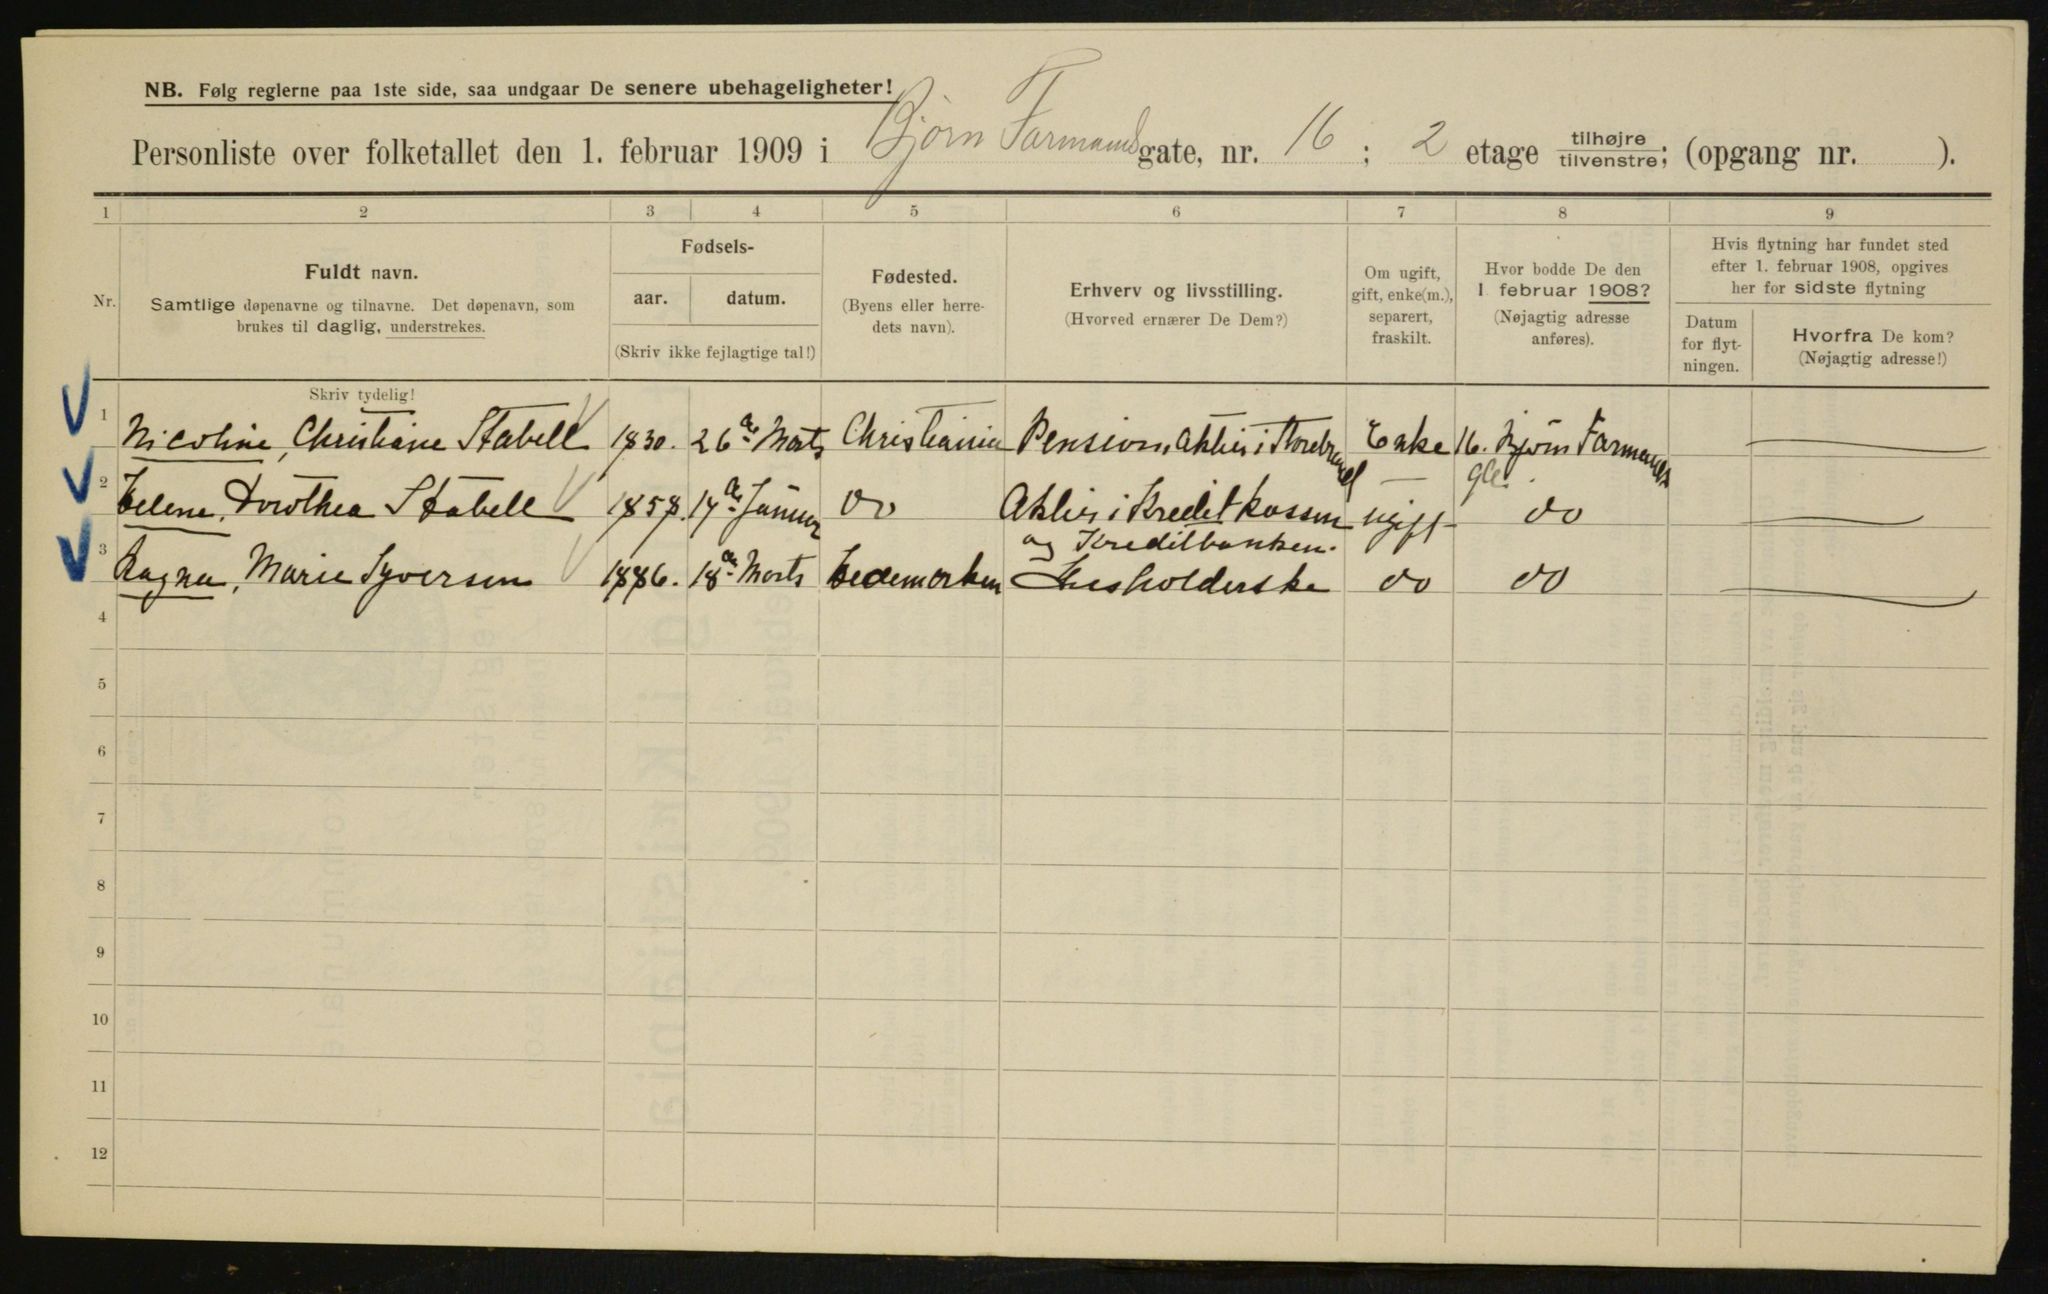 NB. Følg reglerne paa 1ste side, saa undgaar De senere ubehageligheter!
Personliste over folketallet den 1. februar 1909 i Bjørn Farmands gate, nr. 16 ; 2 etage tilhøjre / tilvenstre; (opgang nr. ).
1 2 3 4 5 6 7 8 9
Nr.
Fuldt navn.
Samtlige døpenavne og tilnavne. Det døpenavn, som
brukes til daglig, understrekes.
Fødsels-
aar. datum.
(Skriv ikke fejlagtige tal!)
Fødested.
(Byens eller herre-
dets navn).
Erhverv og livsstilling.
(Hvorved ernærer De Dem?)
Om ugift,
gift, enke(m.),
separert,
fraskilt.
Hvor bodde De den
1 februar 1908?
(Nøjagtig adresse
anføres).
Hvis flytning har fundet sted
efter 1. februar 1908, opgives
her for sidste flytning
Datum
for flyt-
ningen.
Hvorfra De kom?
(Nøjagtig adresse!)
Skriv tydelig!
1 Nicoline, Christiane Stabell 1830. 26de Marts Christiania Pension, Aktier i Storebrand Enke 16. Bjørn Farmands
gte.
2 Helene, Dorothea Stabell 1858. 14de Januar do Aktier i Kreditkassen ugift do
og Kreditbanken.
3 Ragna, Marie Syversen 1886. 18de Marts Hedemarken Husholderske do do
4
5
6
7
8
9
10
11
12